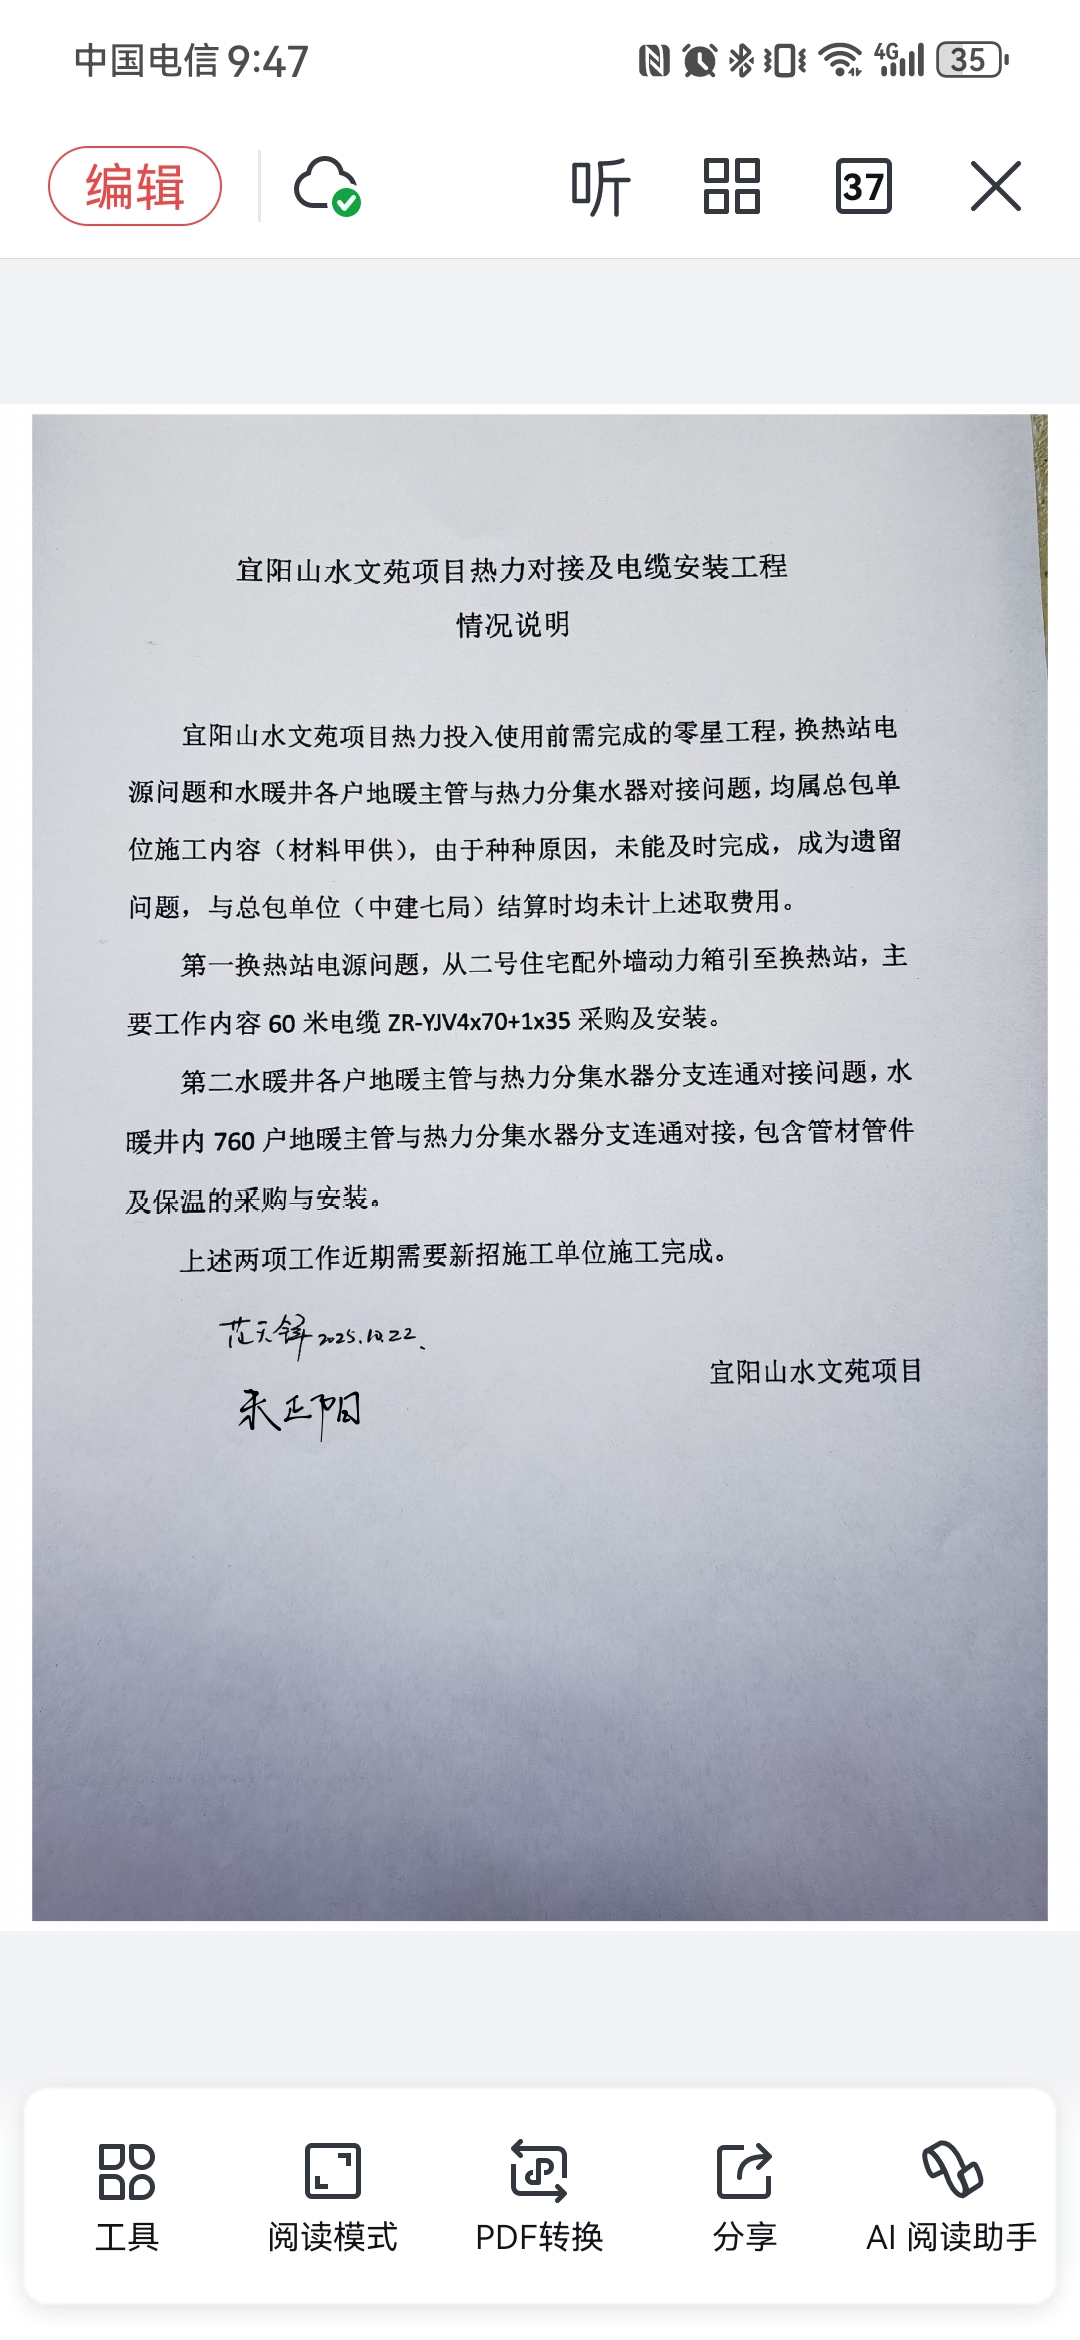 中国电信 9:47
4G
35
编辑
听
37
宜阳山水文苑项目热力对接及电缆安装工程
情况说明
宜阳山水文苑项目热力投入使用前需完成的零星工程，换热站电
源问题和水暖井各户地暖主管与热力分集水器对接问题，均属总包单
位施工内容（材料甲供），由于种种原因，未能及时完成，成为遗留
问题，与总包单位（中建七局）结算时均未计上述取费用。
第一换热站电源问题，从二号住宅配外墙动力箱引至换热站，主
要工作内容 60 米电缆 ZR-YJV4x70+1x35 采购及安装。
第二水暖井各户地暖主管与热力分集水器分支连通对接问题，水
暖井内 760 户地暖主管与热力分集水器分支连通对接，包含管材管件
及保温的采购与安装。
上述两项工作近期需要新招施工单位施工完成。
2025.10.22
宜阳山水文苑项目
正阳
工具
阅读模式
PDF转换
分享
AI 阅读助手